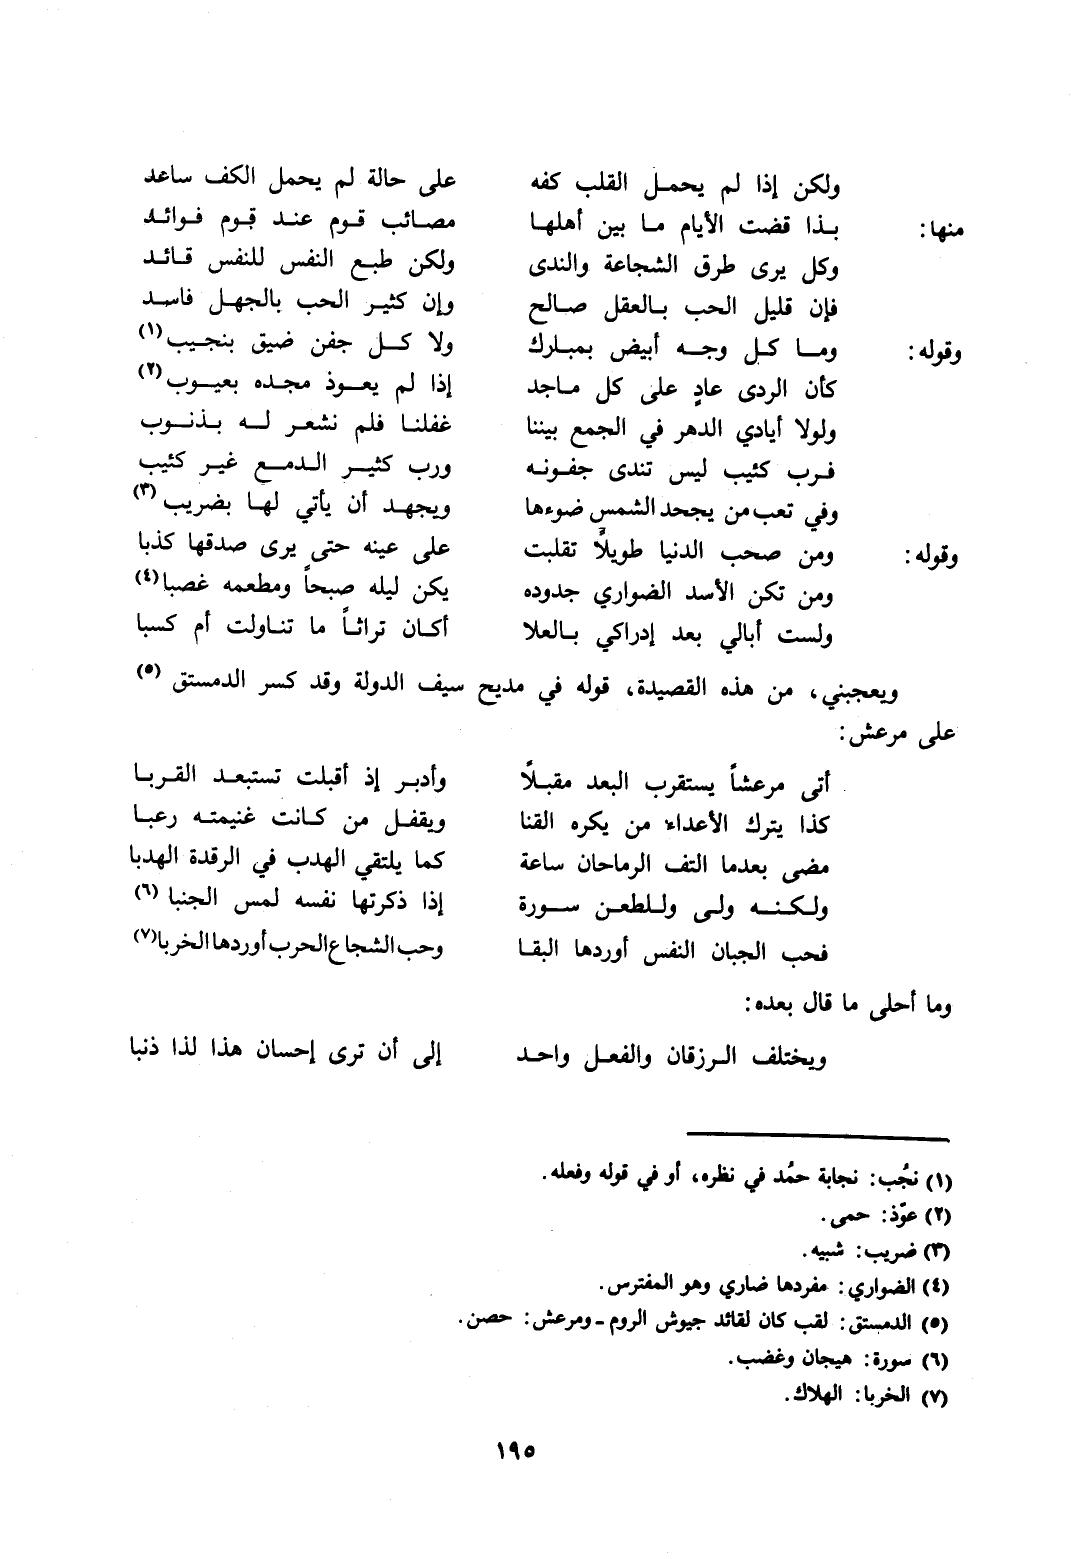 ولكن إذا لم يحمل القلب كفه على حالة لم يحمل الكف ساعد
منها: بذا قضت الأيام ما بين أهلها مصائب قوم عند قوم فوائد
وكل يرى طرق الشجاعة والندى ولكن طبع النفس للنفس قائد
فإن قليل الحب بالعقل صالح وإن كثير الحب بالجهل فاسد
وقوله: وما كل وجه أبيض بمبارك ولا كل جفن ضيق بنجيب(١)
كأن الردى عادٍ على كل ماجد إذا لم يعوذ مجده بعيوب(٢)
ولولا أيادي الدهر في الجمع بيننا غفلنا فلم نشعر له بذنوب
فرب كئيب ليس تندى جفونه ورب كثير الدمع غير كئيب
وفي تعب من يجحد الشمس ضوءها ويجهد أن يأتي لها بضريب(٣)
وقوله: ومن صحب الدنيا طويلًا تقلبت على عينه حتى يرى صدقها كذبا
ومن تكن الأسد الضواري جدوده يكن ليله صبحاً ومطعمه غصبا(٤)
ولست أبالي بعد إدراكي بالعلا أكان تراثاً ما تناولت أم كسبا
ويعجبني، من هذه القصيدة، قوله في مديح سيف الدولة وقد كسر الدمستق(٥)
على مرعش:
أتى مرعشاً يستقرب البعد مقبلًا وأدبر إذ أقبلت تستبعد القربا
كذا يترك الأعداء من يكره القنا ويقفل من كانت غنيمته رعبا
مضى بعدما التف الرماحان ساعة كما يلتقي الهدب في الرقدة الهدبا
ولكنه ولى وللطعن سورة إذا ذكرتها نفسه لمس الجنبا(٦)
فحب الجبان النفس أوردها البقا وحب الشجاع الحرب أوردها الخربا(٧)
وما أحلى ما قال بعده:
ويختلف الرزقان والفعل واحد إلى أن ترى إحسان هذا لذا ذنبا
(١) نجُب: نجابة حمُد في نظره، أو في قوله وفعله.
(٢) عوّذ: حمى.
(٣) ضريب: شبيه.
(٤) الضواري: مفردها ضاري وهو المفترس.
(٥) الدمستق: لقب كان لقائد جيوش الروم - ومرعش: حصن.
(٦) سورة: هيجان وغضب.
(٧) الخربا: الهلاك.
١٩٥